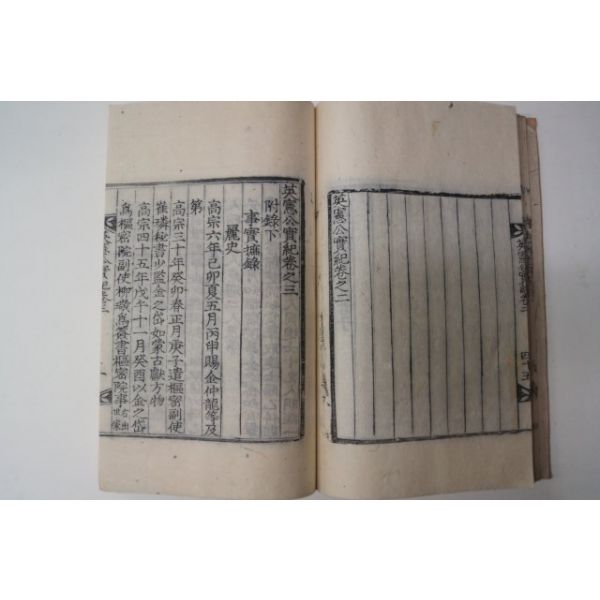 英憲公實紀卷之二
英憲公實紀卷之三
附錄下
事實摭錄
麗史
高宗六年己卯夏五月丙申賜金仲龍等及
第
高宗三十年癸卯春正月庚子遣樞密副使
崔璘秘書少監金之岱如蒙古獻方物
高宗四十五年戊午十一月癸酉以金之岱
爲樞密院副使柳璥爲簽書樞密院事右出世家